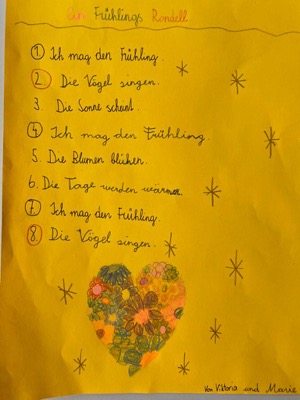 Ein Frühlings Rondell
1. Ich mag den Frühling.
2. Die Vögel singen.
3. Die Sonne scheint.
4. Ich mag den Frühling
5. Die Blumen blühen.
6. Die Tage werden wärmer.
7. Ich mag den Frühling.
8. Die Vögel singen.
Von Viktoria und Marie